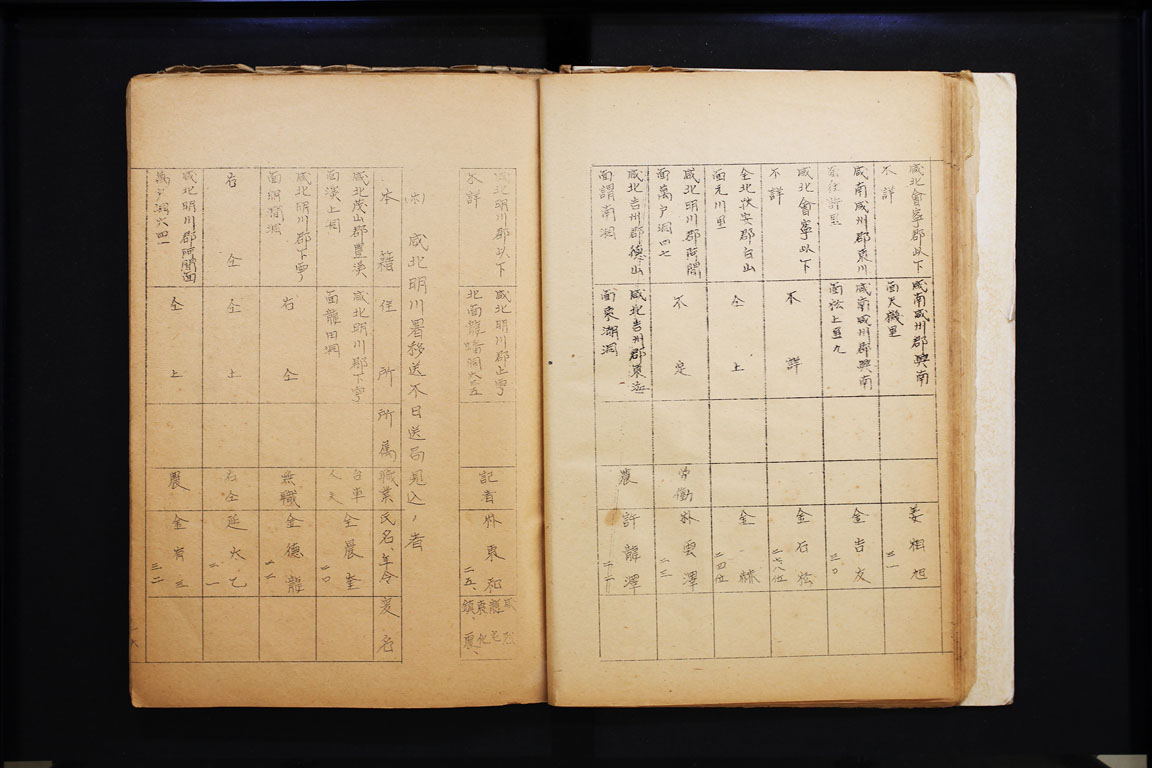 咸北會寧郡以下
不詳
咸南咸州郡興南
面天機里
姜相旭
三一
咸南咸州郡東川
咸南咸州郡興南
金吉友
三〇
咸北會寧以下
不詳
不詳
金石松
二七八位
全北扶安郡白山
面元川里
仝上
金
二四位
咸北明川郡阿間
面萬戶洞四七
不定
労働
朴雲澤
二三
咸北吉州郡德山
面謂南洞
咸北吉州郡東海
面東湖洞
農
許韓澤
二二
咸北明川郡以下
不詳
咸北明川郡上雩
北面
記者
朴東和
二五
咸北明川署移送不日送局見込ノ者
本籍
住所
所属
職業
氏名、年令
変名
咸北茂山郡豊渓
面漢上洞
咸北明川郡下雩
面龍田洞
台車人夫
仝晨奎
二〇
咸北明川郡下雩
面明澗洞
右仝
無職
金德龍
二二
右仝
仝上
右仝
延火乙
二一
咸北明川郡阿間面
萬戶洞六四一
仝上
農
金有三
三二